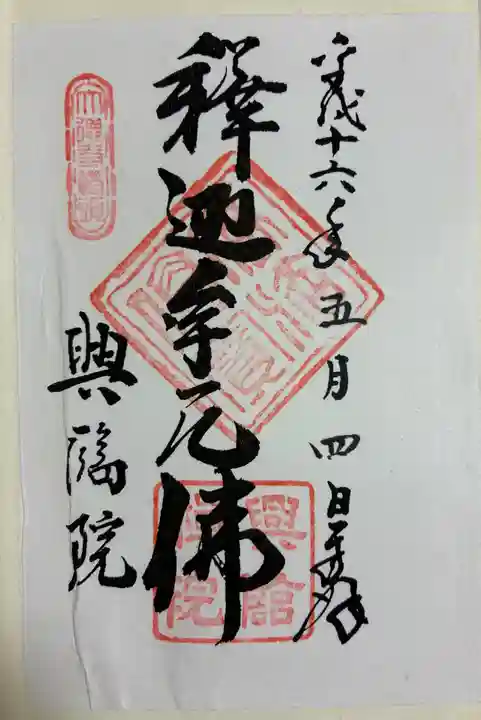 平成十六年五月四日奉拝
釋迦牟尼佛
興臨院
興臨院